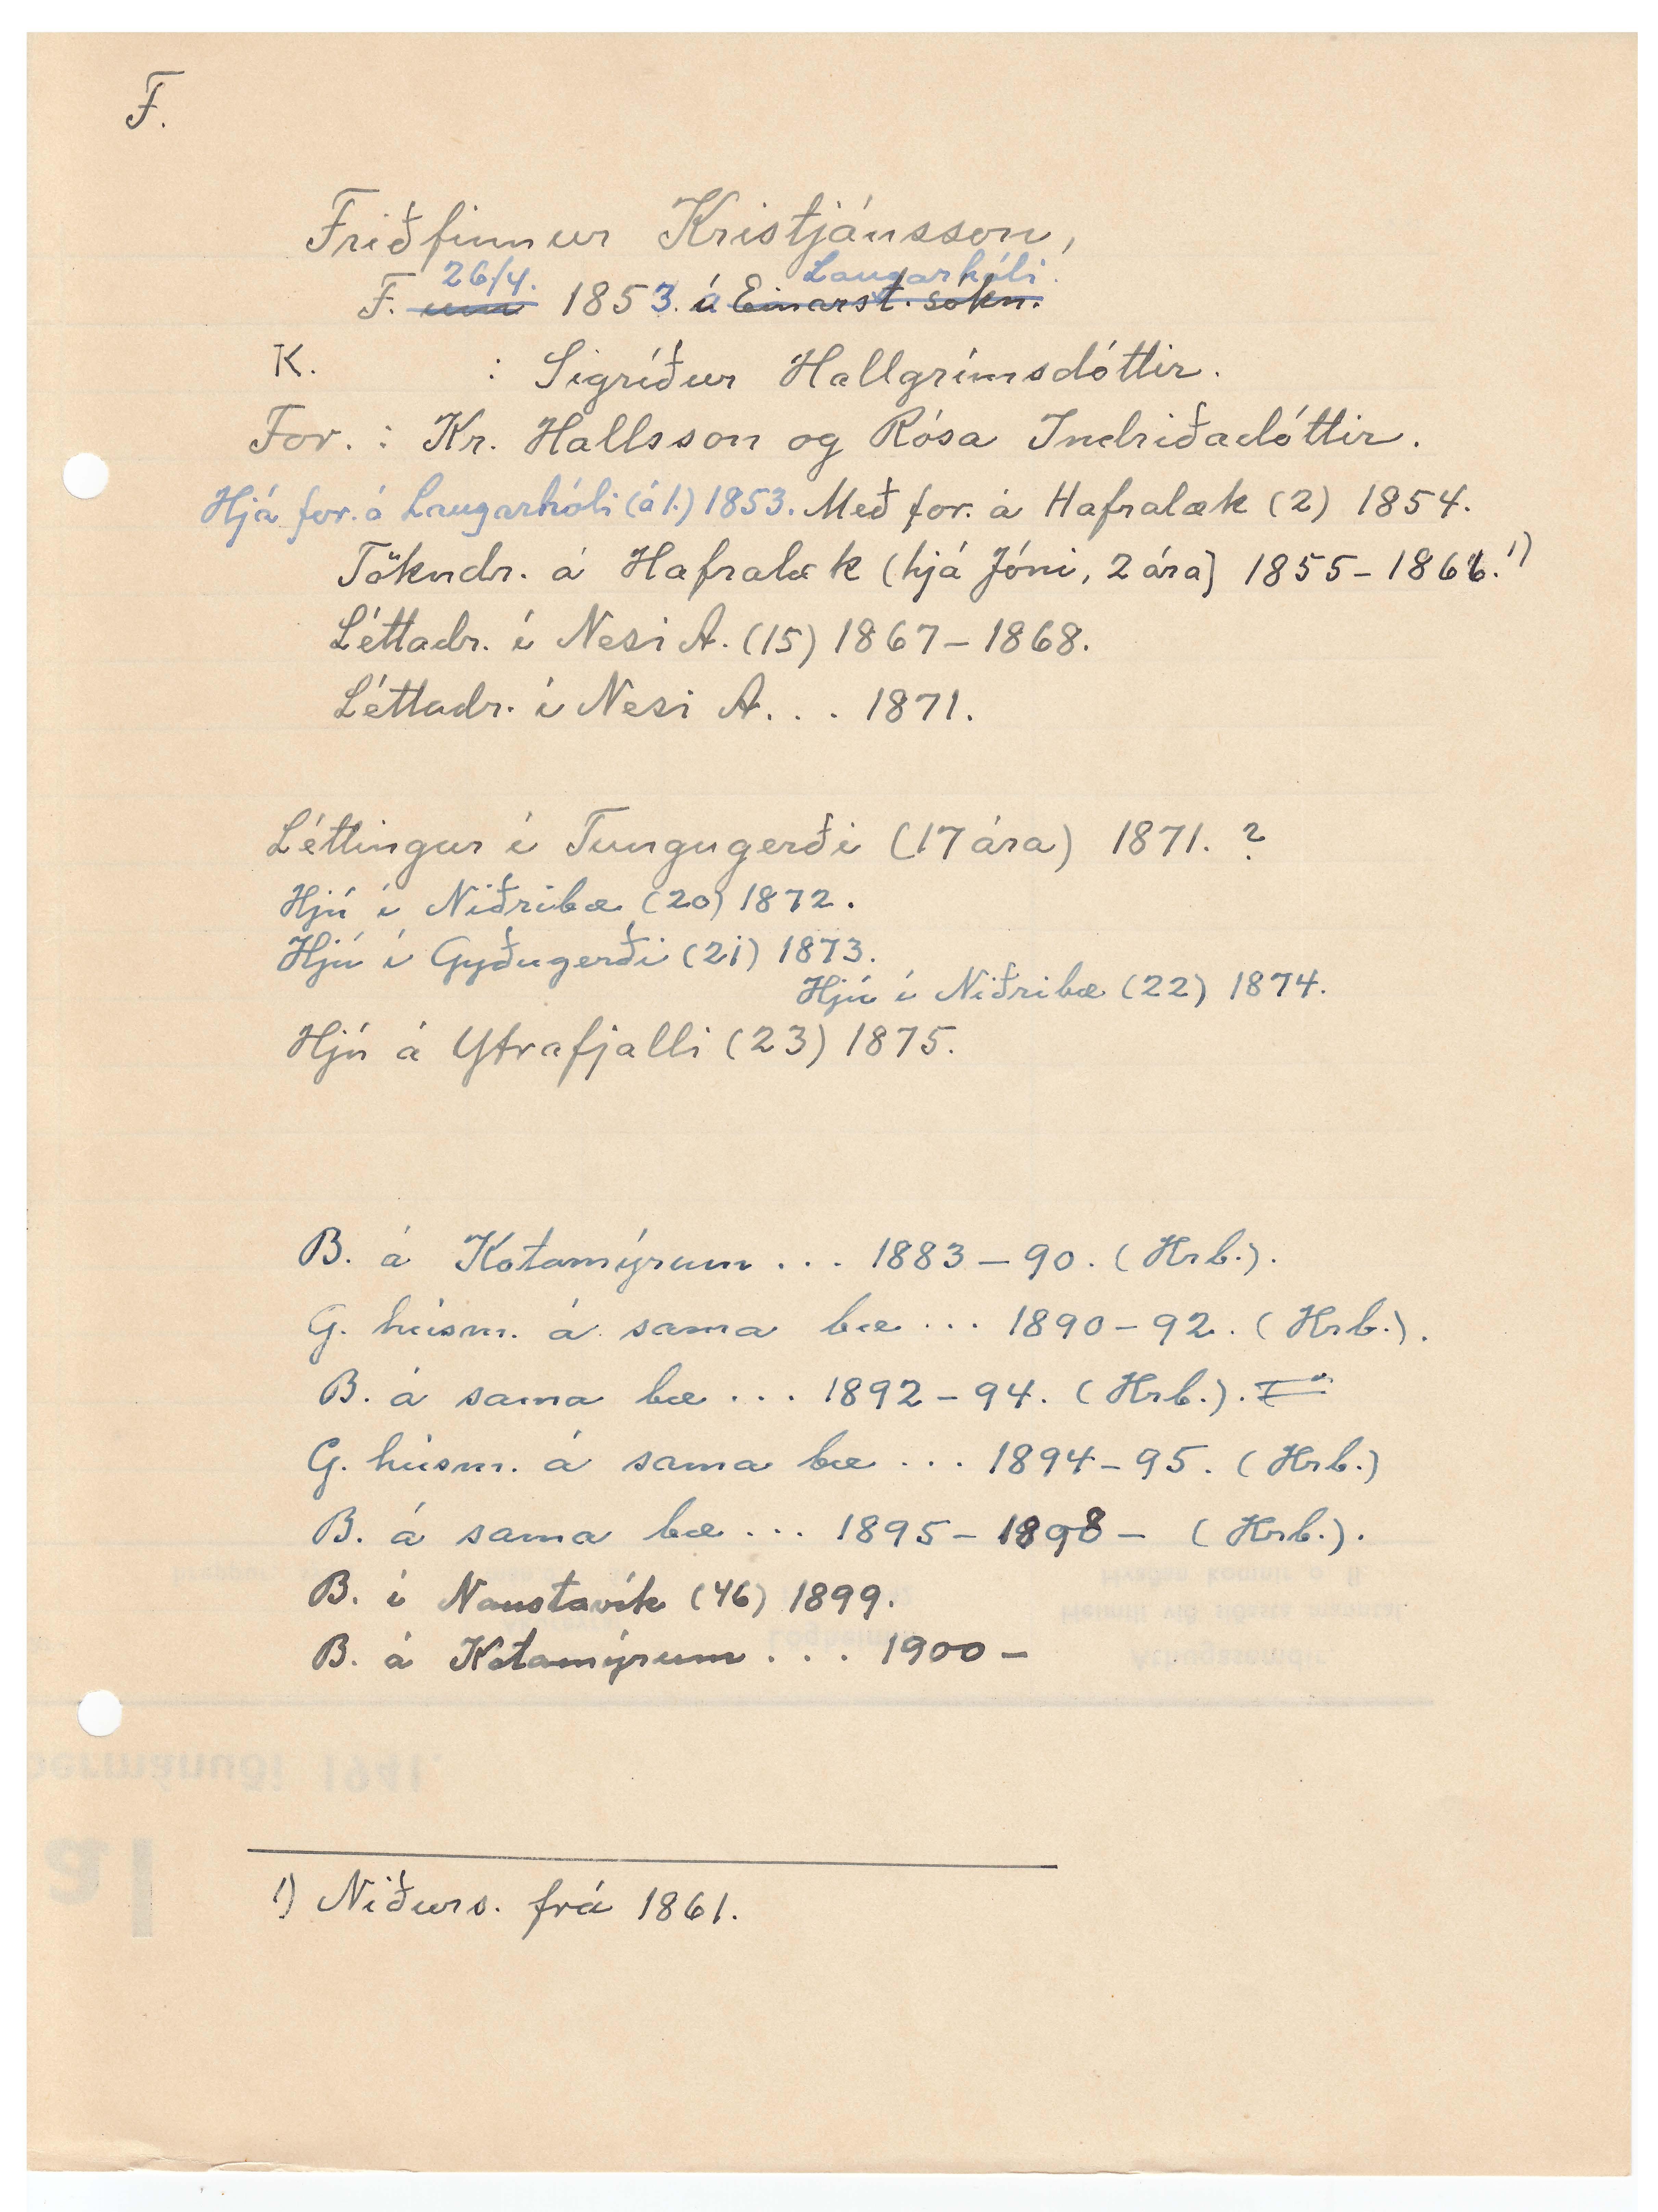 F.
Friðfinnur Kristjánsson,
26/4. Laugarhóli.
F. um 1853. á Einarst. sókn.
K. : Sigríður Hallgrímsdóttir.
For. : Kr. Hallsson og Rósa Indriðadóttir.
Hjá for. á Laugarhóli (á 1.) 1853. Með for. á Hafralæk (2) 1854.
Tökudr. á Hafralæk (hjá Jóni, 2 ára) 1855-1866. 1)
Léttadr. í Nesi A. (15) 1867-1868.
Léttadr. í Nesi A. . . 1871.
Léttingur í Tungugerði (17 ára) 1871. ?
Hjú í Niðribæ (20) 1872.
Hjú í Gyðugerði (21) 1873.
Hjú í Niðribæ (22) 1874.
Hjú á Ytrafjalli (23) 1875.
B. á Kotamýrum . . . 1883-90. (Hrb.).
G. húsm. á sama bæ ... 1890-92. (Hrb.).
B. á sama bæ ... 1892-94. (Hrb.).
G. húsm. á sama bæ ... 1894-95. (Hrb.)
B. á sama bæ ... 1895-1898- (Hrb.).
B. í Naustavík (46) 1899.
B. á Kotamýrum . . . 1900-
1) Niðurs. frá 1861.